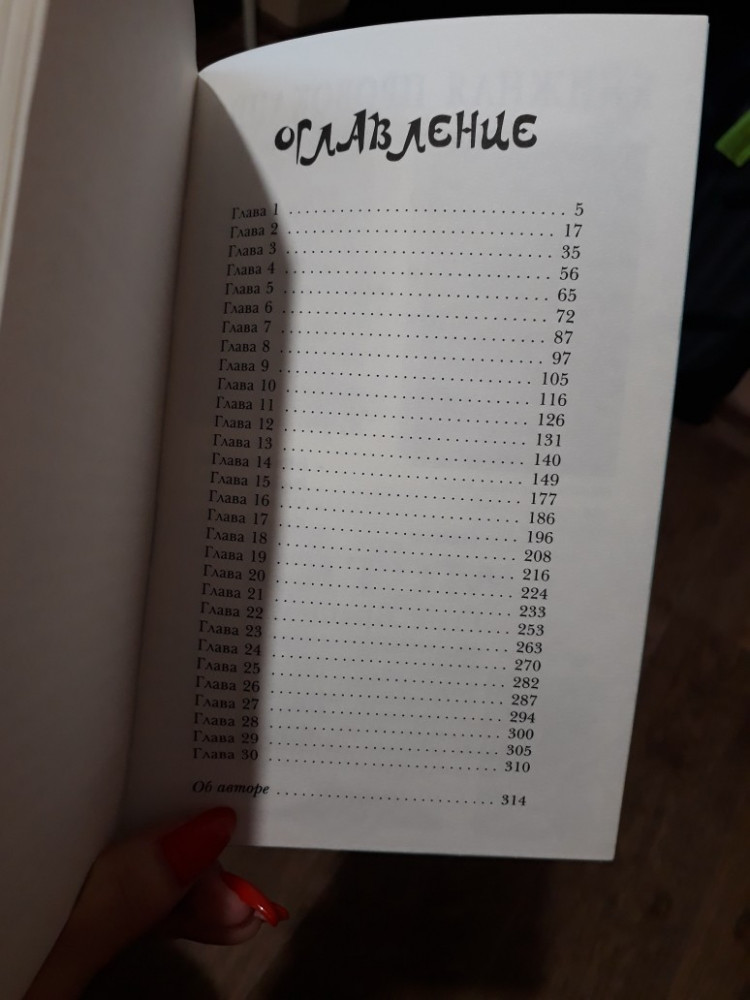 ОГЛАВЛЕНИЕ
Глава 1 5
Глава 2 17
Глава 3 35
Глава 4 56
Глава 5 65
Глава 6 72
Глава 7 87
Глава 8 97
Глава 9 105
Глава 10 116
Глава 11 126
Глава 12 131
Глава 13 140
Глава 14 149
Глава 15 177
Глава 16 186
Глава 17 196
Глава 18 208
Глава 19 216
Глава 20 224
Глава 21 233
Глава 22 253
Глава 23 263
Глава 24 270
Глава 25 282
Глава 26 287
Глава 27 294
Глава 28 300
Глава 29 305
Глава 30 310
Об авторе 314